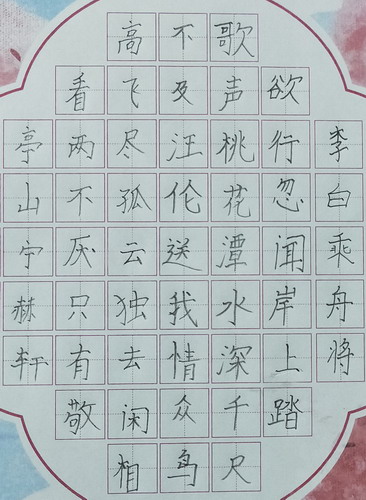 李白乘舟将
欲行忽闻岸上踏
歌声桃花潭水深千尺
不及汪伦送我情众鸟
高飞尽孤云独去闲相
看两不厌只有敬
亭山宁赫轩